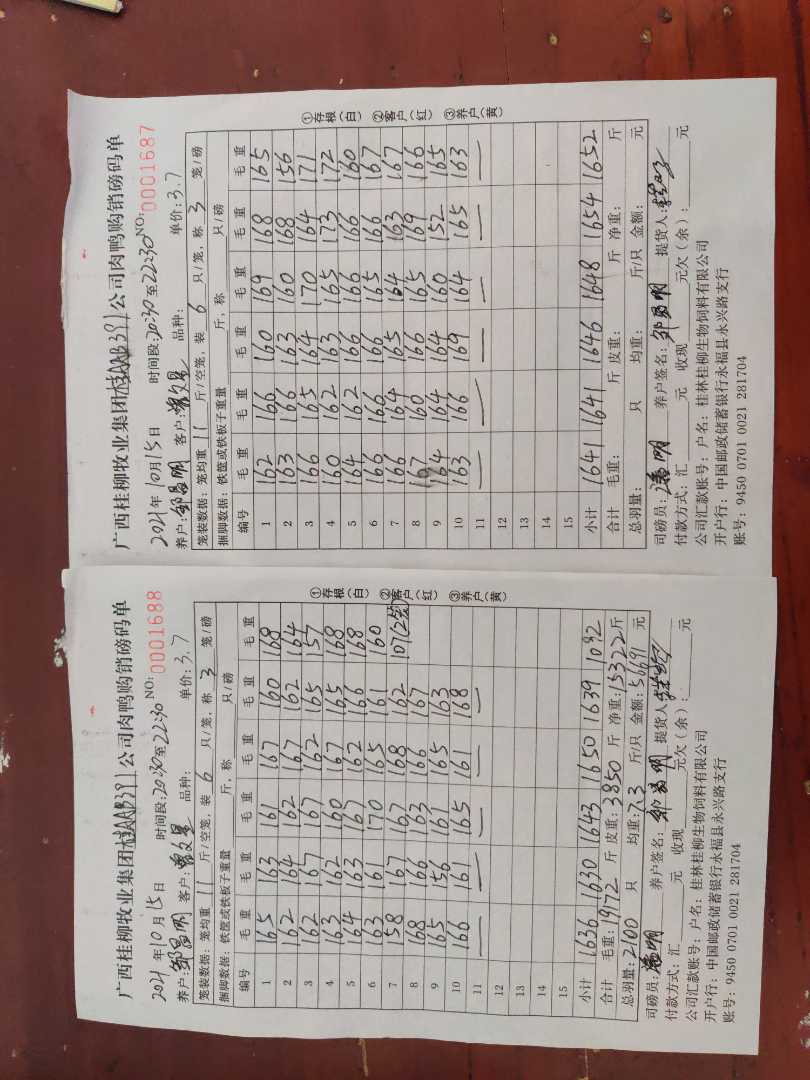 广西桂柳牧业集团桂AAB391公司肉鸭购销磅码单
2021年10月15日 时间段:20:30至22:30 NO:0001687
养户:邹昌明 客户: 品种: 单价:3.7
笼装数据:笼均重 11 斤/空笼,装 6 只/笼,称 3 笼/磅
捆脚数据:铁筐或铁板子重量 斤,称 只/磅
编号 毛重 毛重 毛重 毛重 毛重 毛重
1 162 166 160 169 168 165
2 163 166 163 160 168 156
3 166 165 164 170 164 171
4 160 162 163 165 173 172
5 164 162 166 166 166 160
6 166 160 166 165 166 167
7 166 164 165 164 163 167
8 167 160 166 165 169 166
9 164 164 164 160 152 165
10 163 166 169 164 165 163
11 — — — — — —
12
13
14
15
小计 1641 1641 1646 1648 1654 1652
合计 毛重: 斤 皮重: 斤 净重: 斤
总羽量: 只 均重: 斤/只 金额: 元
司磅员: 养户签名:邹昌明 提货人:
付款方式:汇 元 收现 元欠(余): 元
公司汇款账号:户名:桂林桂柳生物饲料有限公司
开户行:中国邮政储蓄银行永福县永兴路支行
账号:9450 0701 0021 281704
①存根(白) ②客户(红) ③养户(黄)
广西桂柳牧业集团桂AAB391公司肉鸭购销磅码单
2021年10月15日 时间段:20:30至22:30 NO:0001688
养户:邹昌明 客户: 品种: 单价:3.7
笼装数据:笼均重 11 斤/空笼,装 6 只/笼,称 3 笼/磅
捆脚数据:铁筐或铁板子重量 斤,称 只/磅
编号 毛重 毛重 毛重 毛重 毛重 毛重
1 165 163 161 167 160 168
2 162 164 162 167 162 164
3 162 167 167 162 165 157
4 163 162 160 167 165 168
5 164 163 167 162 166 168
6 163 161 170 165 161 160
7 158 167 167 168 162 107(2笼)
8 168 166 163 166 167
9 165 156 161 165 163
10 166 161 165 161 168
11 — — — — —
12
13
14
15
小计 1636 1630 1643 1650 1639 1092
合计 毛重:19172 斤 皮重:3850 斤 净重:15322斤
总羽量:2100 只 均重:7.3 斤/只 金额:56691元
司磅员: 养户签名:邹昌明 提货人:
付款方式:汇 元 收现 元欠(余): 元
公司汇款账号:户名:桂林桂柳生物饲料有限公司
开户行:中国邮政储蓄银行永福县永兴路支行
账号:9450 0701 0021 281704
①存根(白) ②客户(红) ③养户(黄)